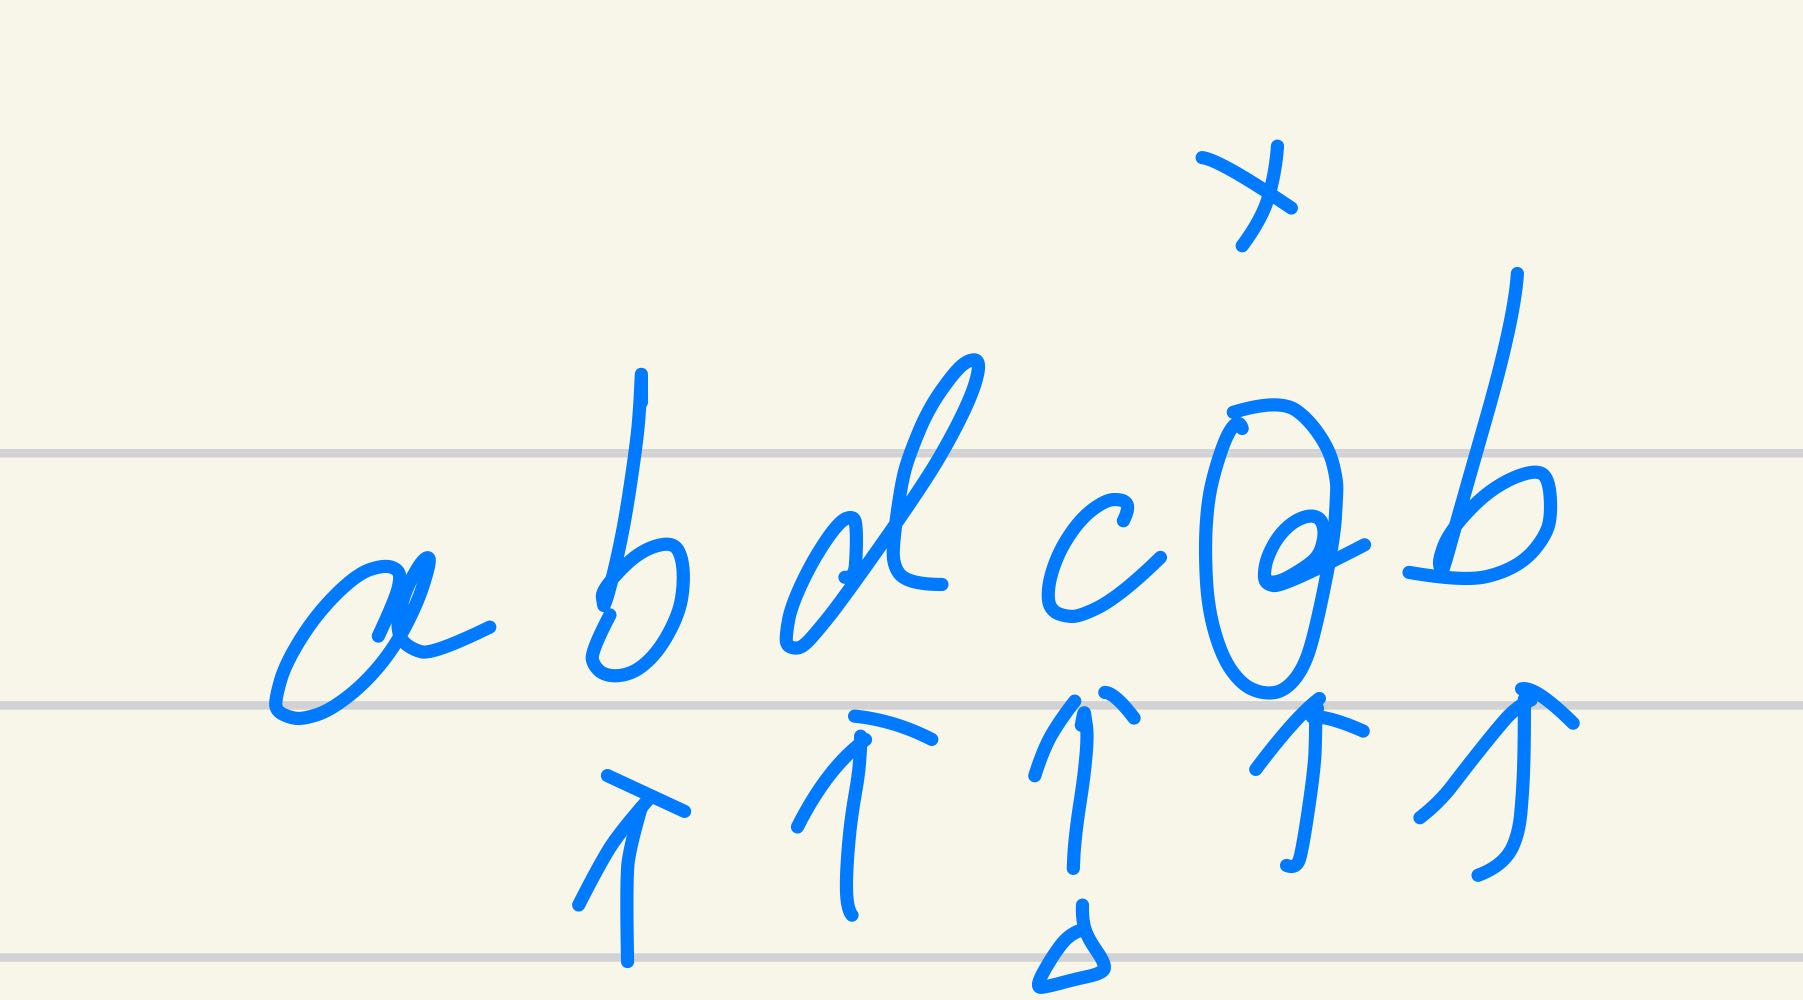 x
a b d c a b